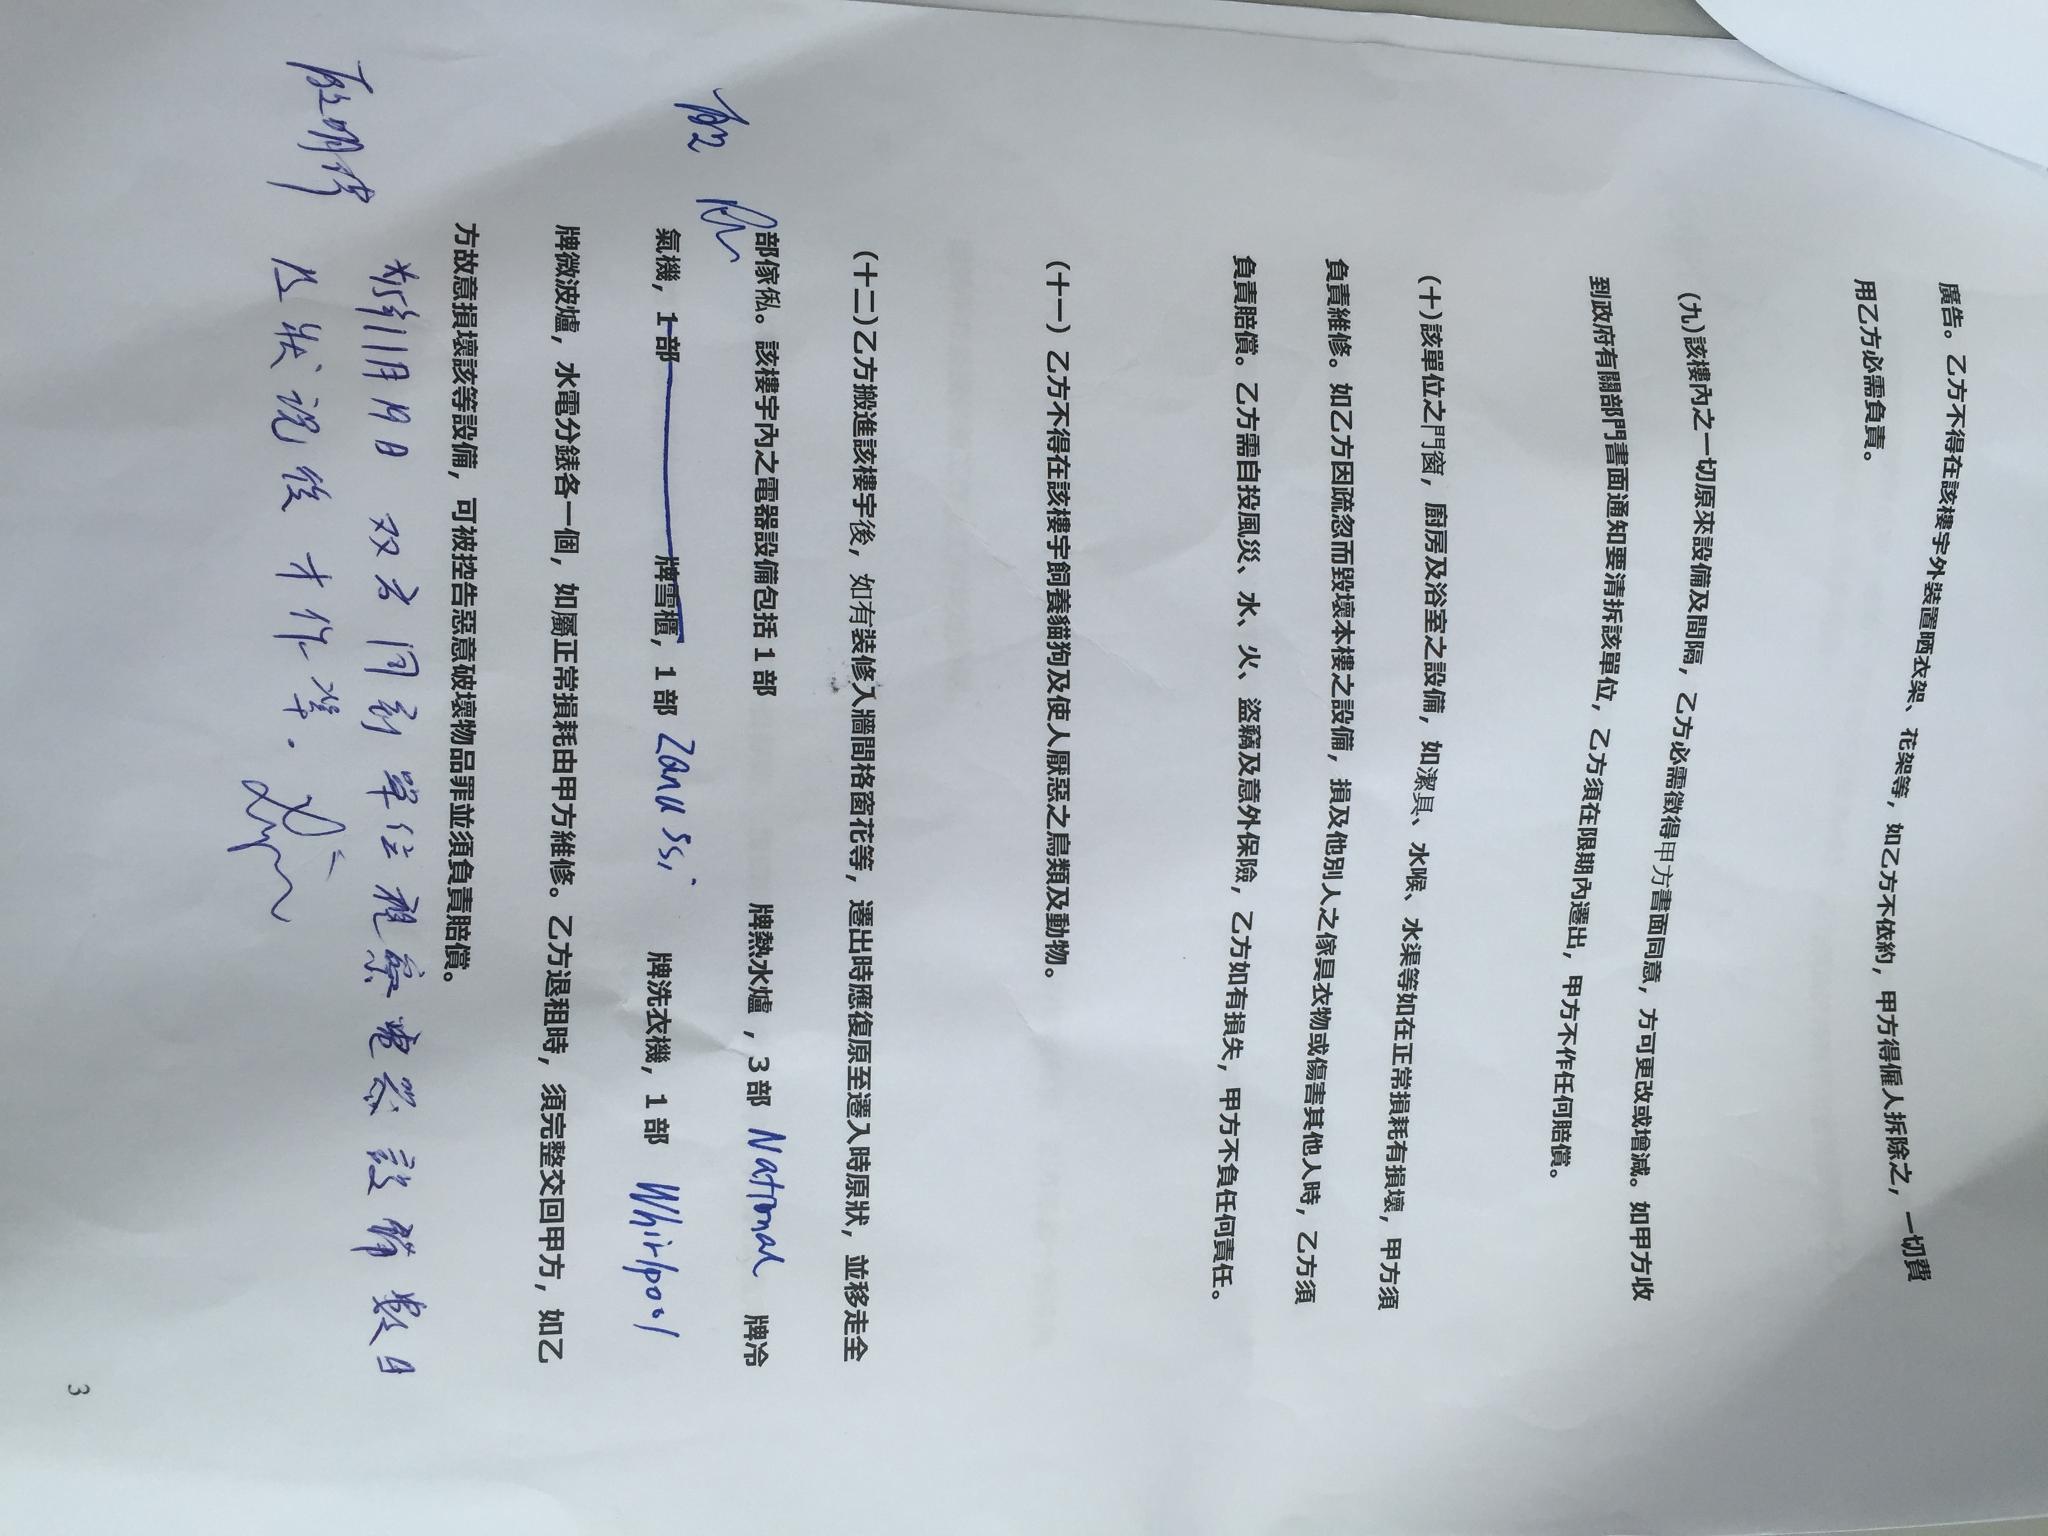 廣告。乙方不得在該樓宇外裝置晒衣架、花架等，如乙方不依約，甲方得僱人拆除之，一切費
用乙方必需負責。
(九)該樓內之一切原來設備及間隔，乙方必需徵得甲方書面同意，方可更改或增減。如甲方收
到政府有關部門書面通知要清拆該單位，乙方須在限期內遷出，甲方不作任何賠償。
(十)該單位之門窗，廚房及浴室之設備，如潔具、水喉、水渠等如在正常損耗有損壞，甲方須
負責維修。如乙方因疏忽而毀壞本樓之設備，損及他別人之傢具衣物或傷害其他人時，乙方須
負責賠償。乙方需自投風災、水、火、盜竊及意外保險，乙方如有損失，甲方不負任何責任。
(十一) 乙方不得在該樓宇飼養貓狗及使人厭惡之鳥類及動物。
(十二)乙方搬進該樓宇後，如有裝修入牆間格窗花等，遷出時應復原至遷入時原狀，並移走全
部傢俬。該樓宇內之電器設備包括 1 部 牌熱水爐，3 部 National 牌冷
氣機，1 部 牌雪櫃，1 部 Zanussi 牌洗衣機，1 部 Whirlpool
牌微波爐，水電分錶各一個，如屬正常損耗由甲方維修。乙方退租時，須完整交回甲方，如乙
方故意損壞該等設備，可被控告惡意破壞物品罪並須負責賠償。
11月 日 双方同到單位視察電器設備數目
及狀況後才作準.
3